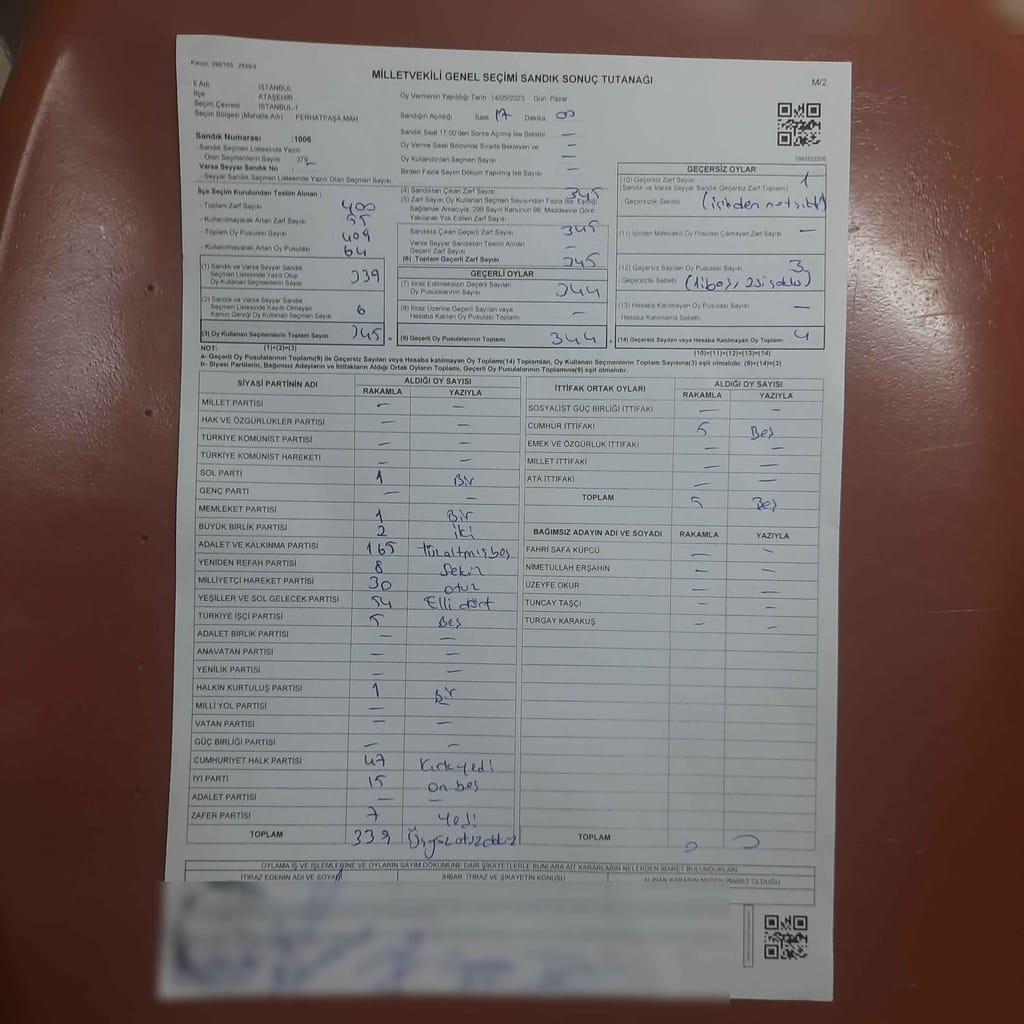 Kanun: 298/105 2839/4
MİLLETVEKİLİ GENEL SEÇİMİ SANDIK SONUÇ TUTANAĞI
M/2
İl Adı İSTANBUL
İlçe ATAŞEHİR
Seçim Çevresi İSTANBUL-1
Seçim Bölgesi (Mahalle Adı) FERHATPAŞA MAH
Oy Vermenin Yapıldığı Tarih 14/05/2023 Gün: Pazar
Sandığın Açıldığı Saat 17 Dakika 00
Sandık Saat 17:00'den Sonra Açılmış İse Sebebi —
Oy Verme Saati Bitiminde Sırada Bekleyen ve —
Oy Kullandırılan Seçmen Sayısı —
Birden Fazla Sayım Döküm Yapılmış İse Sayısı —
Sandık Numarası :1006
- Sandık Seçmen Listesinde Yazılı
Olan Seçmenlerin Sayısı
Varsa Seyyar Sandık No
- Seyyar Sandık Seçmen Listesinde Yazılı Olan Seçmen Sayısı
İlçe Seçim Kurulundan Teslim Alınan ;
- Toplam Zarf Sayısı 400
- Kullanılmayarak Artan Zarf Sayısı 55
- Toplam Oy Pusulası 409
- Kullanılmayarak Artan Oy Pusulası 64
(1) Sandık ve Varsa Seyyar Sandık
Seçmen Listesinde Yazılı Olup
Oy Kullanan Seçmenlerin Sayısı 339
(2) Sandık ve Varsa Seyyar Sandık
Seçmen Listesinde Kayıtlı Olmayan
Kanun Gereği Oy Kullanan Seçmen Sayısı 6
(3) Oy Kullanan Seçmenlerin Toplam Sayısı 345
(4) Sandıktan Çıkan Zarf Sayısı 345
(5) Zarf Sayısı Oy Kullanan Seçmen Sayısından Fazla İse, Eşitliği
Sağlamak Amacıyla, 298 Sayılı Kanunun 98. Maddesine Göre
Yakılarak Yok Edilen Zarf Sayısı
Sandıkta Çıkan Geçerli Zarf Sayısı 345
Varsa Seyyar Sandıktan Teslim Alınan
Geçerli Zarf Sayısı —
(6) Toplam Geçerli Zarf Sayısı 345
GEÇERLİ OYLAR
(7) İtiraz Edilmeksizin Geçerli Sayılan
Oy Pusulalarının Sayısı 344
(8) İtiraz Üzerine Geçerli Sayılan veya
Hesaba Katılan Oy Pusulaları Toplamı —
(9) Geçerli Oy Pusulalarının Toplamı 344
GEÇERSİZ OYLAR
(10) Geçersiz Zarf Sayısı 1
(Sandık ve Varsa Seyyar Sandık Geçersiz Zarf Toplamı)
- Geçersizlik Sebebi
(11) İçinden Milletvekili Oy Pusulası Çıkmayan Zarf Sayısı —
(12) Geçersiz Sayılan Oy Pusulası Sayısı 3
Geçersizlik Sebebi
(13) Hesaba Katılmayan Oy Pusulası Sayısı —
- Hesaba Katılmama Sebebi
(14) Geçersiz Sayılan veya Hesaba Katılmayan Oy Toplamı 4
NOT: (1)+(2)=(3)
(10)+(11)+(12)+(13)=(14)
a- Geçerli Oy Pusulalarının Toplamı(9) ile Geçersiz Sayılan veya Hesaba katılmayan Oy Toplamı(14) Toplamları, Oy Kullanan Seçmenlerin Toplam Sayısına(3) eşit olmalıdır. (9)+(14)=(3)
b- Siyasi Partilerin, Bağımsız Adayların ve İttifakların Aldığı Ortak Oyların Toplamı, Geçerli Oy Pusulalarının Toplamına(9) eşit olmalıdır.
SİYASİ PARTİNİN ADI ALDIĞI OY SAYISI
RAKAMLA YAZIYLA
MİLLET PARTİSİ — —
HAK VE ÖZGÜRLÜKLER PARTİSİ — —
TÜRKİYE KOMÜNİST PARTİSİ — —
TÜRKİYE KOMÜNİST HAREKETİ — —
SOL PARTİ 1 Bir
GENÇ PARTİ — —
MEMLEKET PARTİSİ 1 Bir
BÜYÜK BİRLİK PARTİSİ 2 İki
ADALET VE KALKINMA PARTİSİ 165 Yüzaltmışbeş
YENİDEN REFAH PARTİSİ 8 Sekiz
MİLLİYETÇİ HAREKET PARTİSİ 30 otuz
YEŞİLLER VE SOL GELECEK PARTİSİ 54 Elli dört
TÜRKİYE İŞÇİ PARTİSİ 5 Beş
ADALET BİRLİK PARTİSİ — —
ANAVATAN PARTİSİ — —
YENİLİK PARTİSİ — —
HALKIN KURTULUŞ PARTİSİ 1 bir
MİLLİ YOL PARTİSİ —
VATAN PARTİSİ — —
GÜÇ BİRLİĞİ PARTİSİ — —
CUMHURİYET HALK PARTİSİ 47 Kırkyedi
İYİ PARTİ 15 on beş
ADALET PARTİSİ — —
ZAFER PARTİSİ 7 Yedi
TOPLAM 339 Üçyüzotuzdokuz
İTTİFAK ORTAK OYLARI ALDIĞI OY SAYISI
RAKAMLA YAZIYLA
SOSYALİST GÜÇ BİRLİĞİ İTTİFAKI — —
CUMHUR İTTİFAKI 5 Beş
EMEK VE ÖZGÜRLÜK İTTİFAKI — —
MİLLET İTTİFAKI — —
ATA İTTİFAKI — —
TOPLAM 5 Beş
BAĞIMSIZ ADAYIN ADI VE SOYADI RAKAMLA YAZIYLA
FAHRİ SAFA KÜPCÜ — —
NİMETULLAH ERŞAHİN — —
ÜZEYFE OKUR — —
TUNCAY TAŞÇI — —
TURGAY KARAKUŞ — —
TOPLAM
OYLAMA İŞ VE İŞLEMLERİNE VE OYLARIN SAYIM DÖKÜMÜNE DAİR ŞİKAYETLERLE BUNLARA AİT KARARLARIN NELERDEN İBARET BULUNDUKLARI
İTİRAZ EDENİN ADI VE SOYADI İHBAR, İTİRAZ VE ŞİKAYETİN KONUSU ALINAN KARARIN NEDEN İBARET OLDUĞU